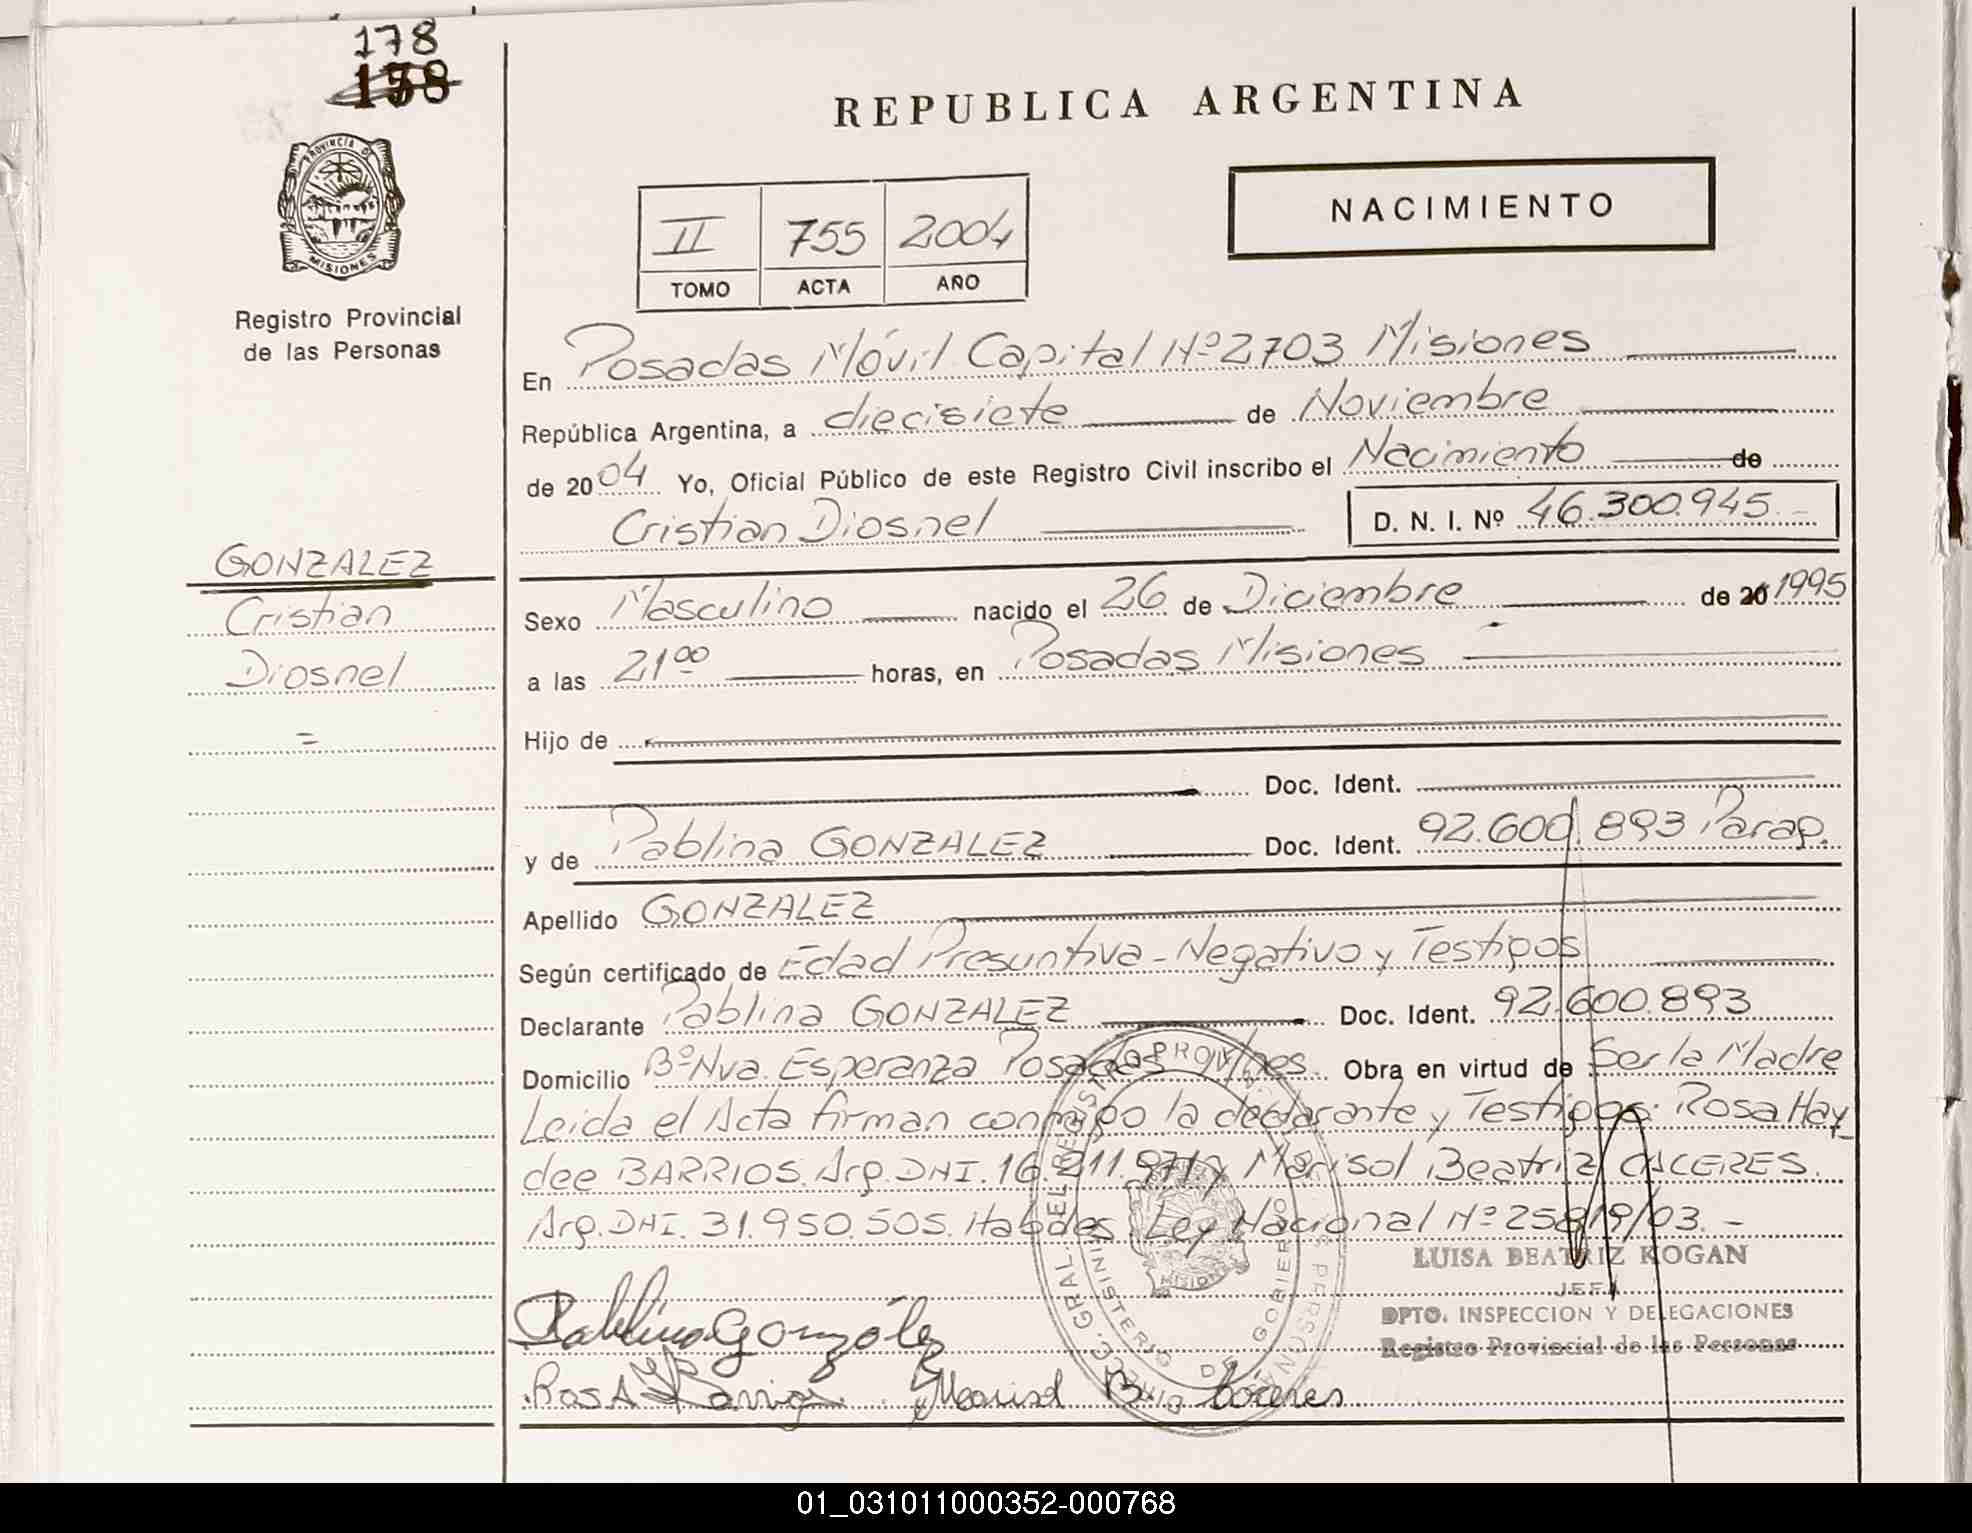 178
158
REPUBLICA ARGENTINA
PROVINCIA D
MISIONES
Registro Provincial
de las Personas
NACIMIENTO
II 755 2004
TOMO ACTA AÑO
En Posadas Móvil Capital Nº 2703 Misiones
República Argentina, a diecisiete de Noviembre
de 2004 Yo, Oficial Público de este Registro Civil inscribo el Nacimiento de
Cristian Diosnel D. N. I. Nº 46.300.945.-
GONZALEZ
Cristian
Diosnel
=
Sexo Masculino nacido el 26 de Diciembre de 20 1995
a las 21 00 horas, en Posadas Misiones
Hijo de
Doc. Ident.
y de Pablina GONZALEZ Doc. Ident. 92.600.893 Parag.
Apellido GONZALEZ
Según certificado de Edad Presuntiva - Negativo y Testigos
Declarante Pablina GONZALEZ Doc. Ident. 92.600.893
Domicilio Bº Nva. Esperanza Posadas Mnes. Obra en virtud de Ser la Madre
Leida el Acta firman conmigo la declarante y Testigos: Rosa Hay_
dee BARRIOS. Arg. DNI. 16.211.971 y Marisol Beatriz CACERES.
Arg. DNI. 31.950.505. Habdes. Ley Nacional Nº 25819/03. -
LUISA BEATRIZ KOGAN
JEFA
DPTO. INSPECCION Y DELEGACIONES
Registro Provincial de las Personas
Pablina González
Rosa Barrios Marisol B. Cáceres
DIREC. GRAL. EL REGISTRO PROVINCIAL DE LAS PERSONAS
MINISTERIO DE GOBIERNO
MISIONES
01_031011000352-000768